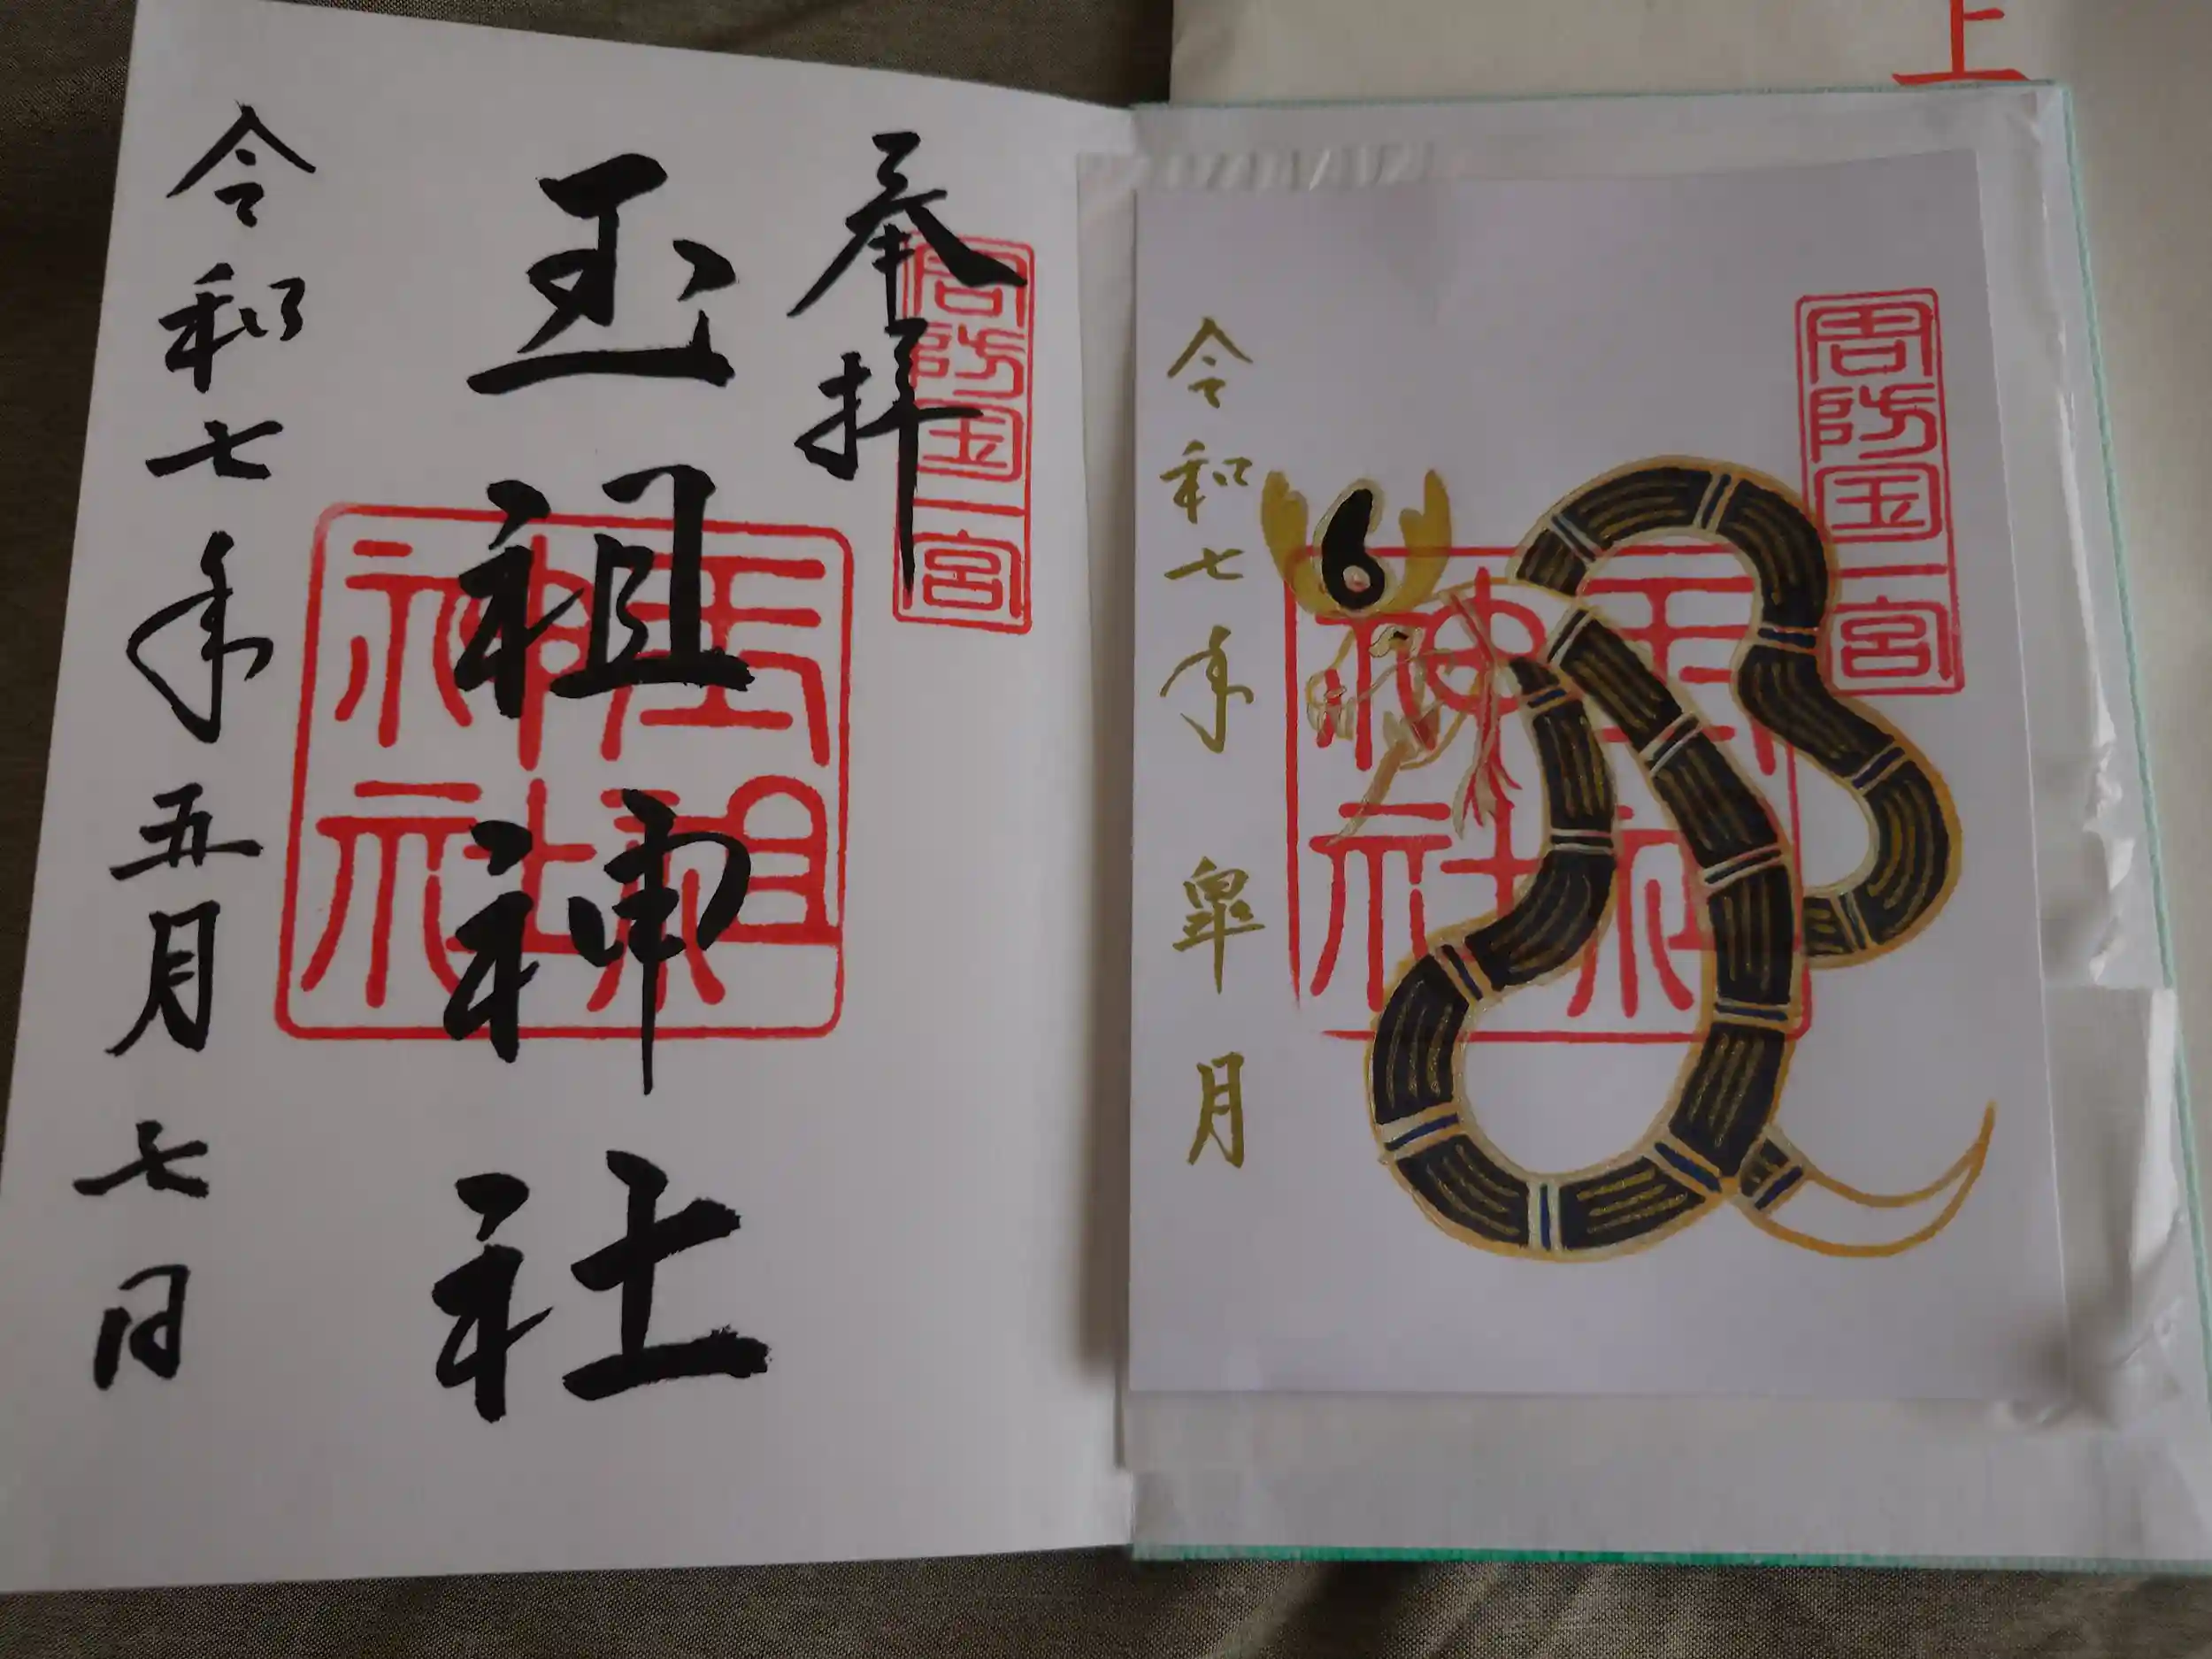 上
奉拝
周防国一宮
玉祖神社
玉祖神社
令和七年五月七日
周防国一宮
玉祖神社
令和七年
皐月